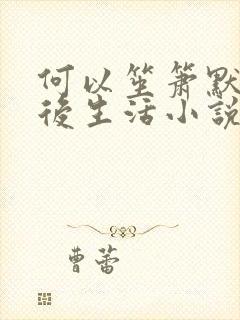 何以笙箫默
後生活小說
曹蕾